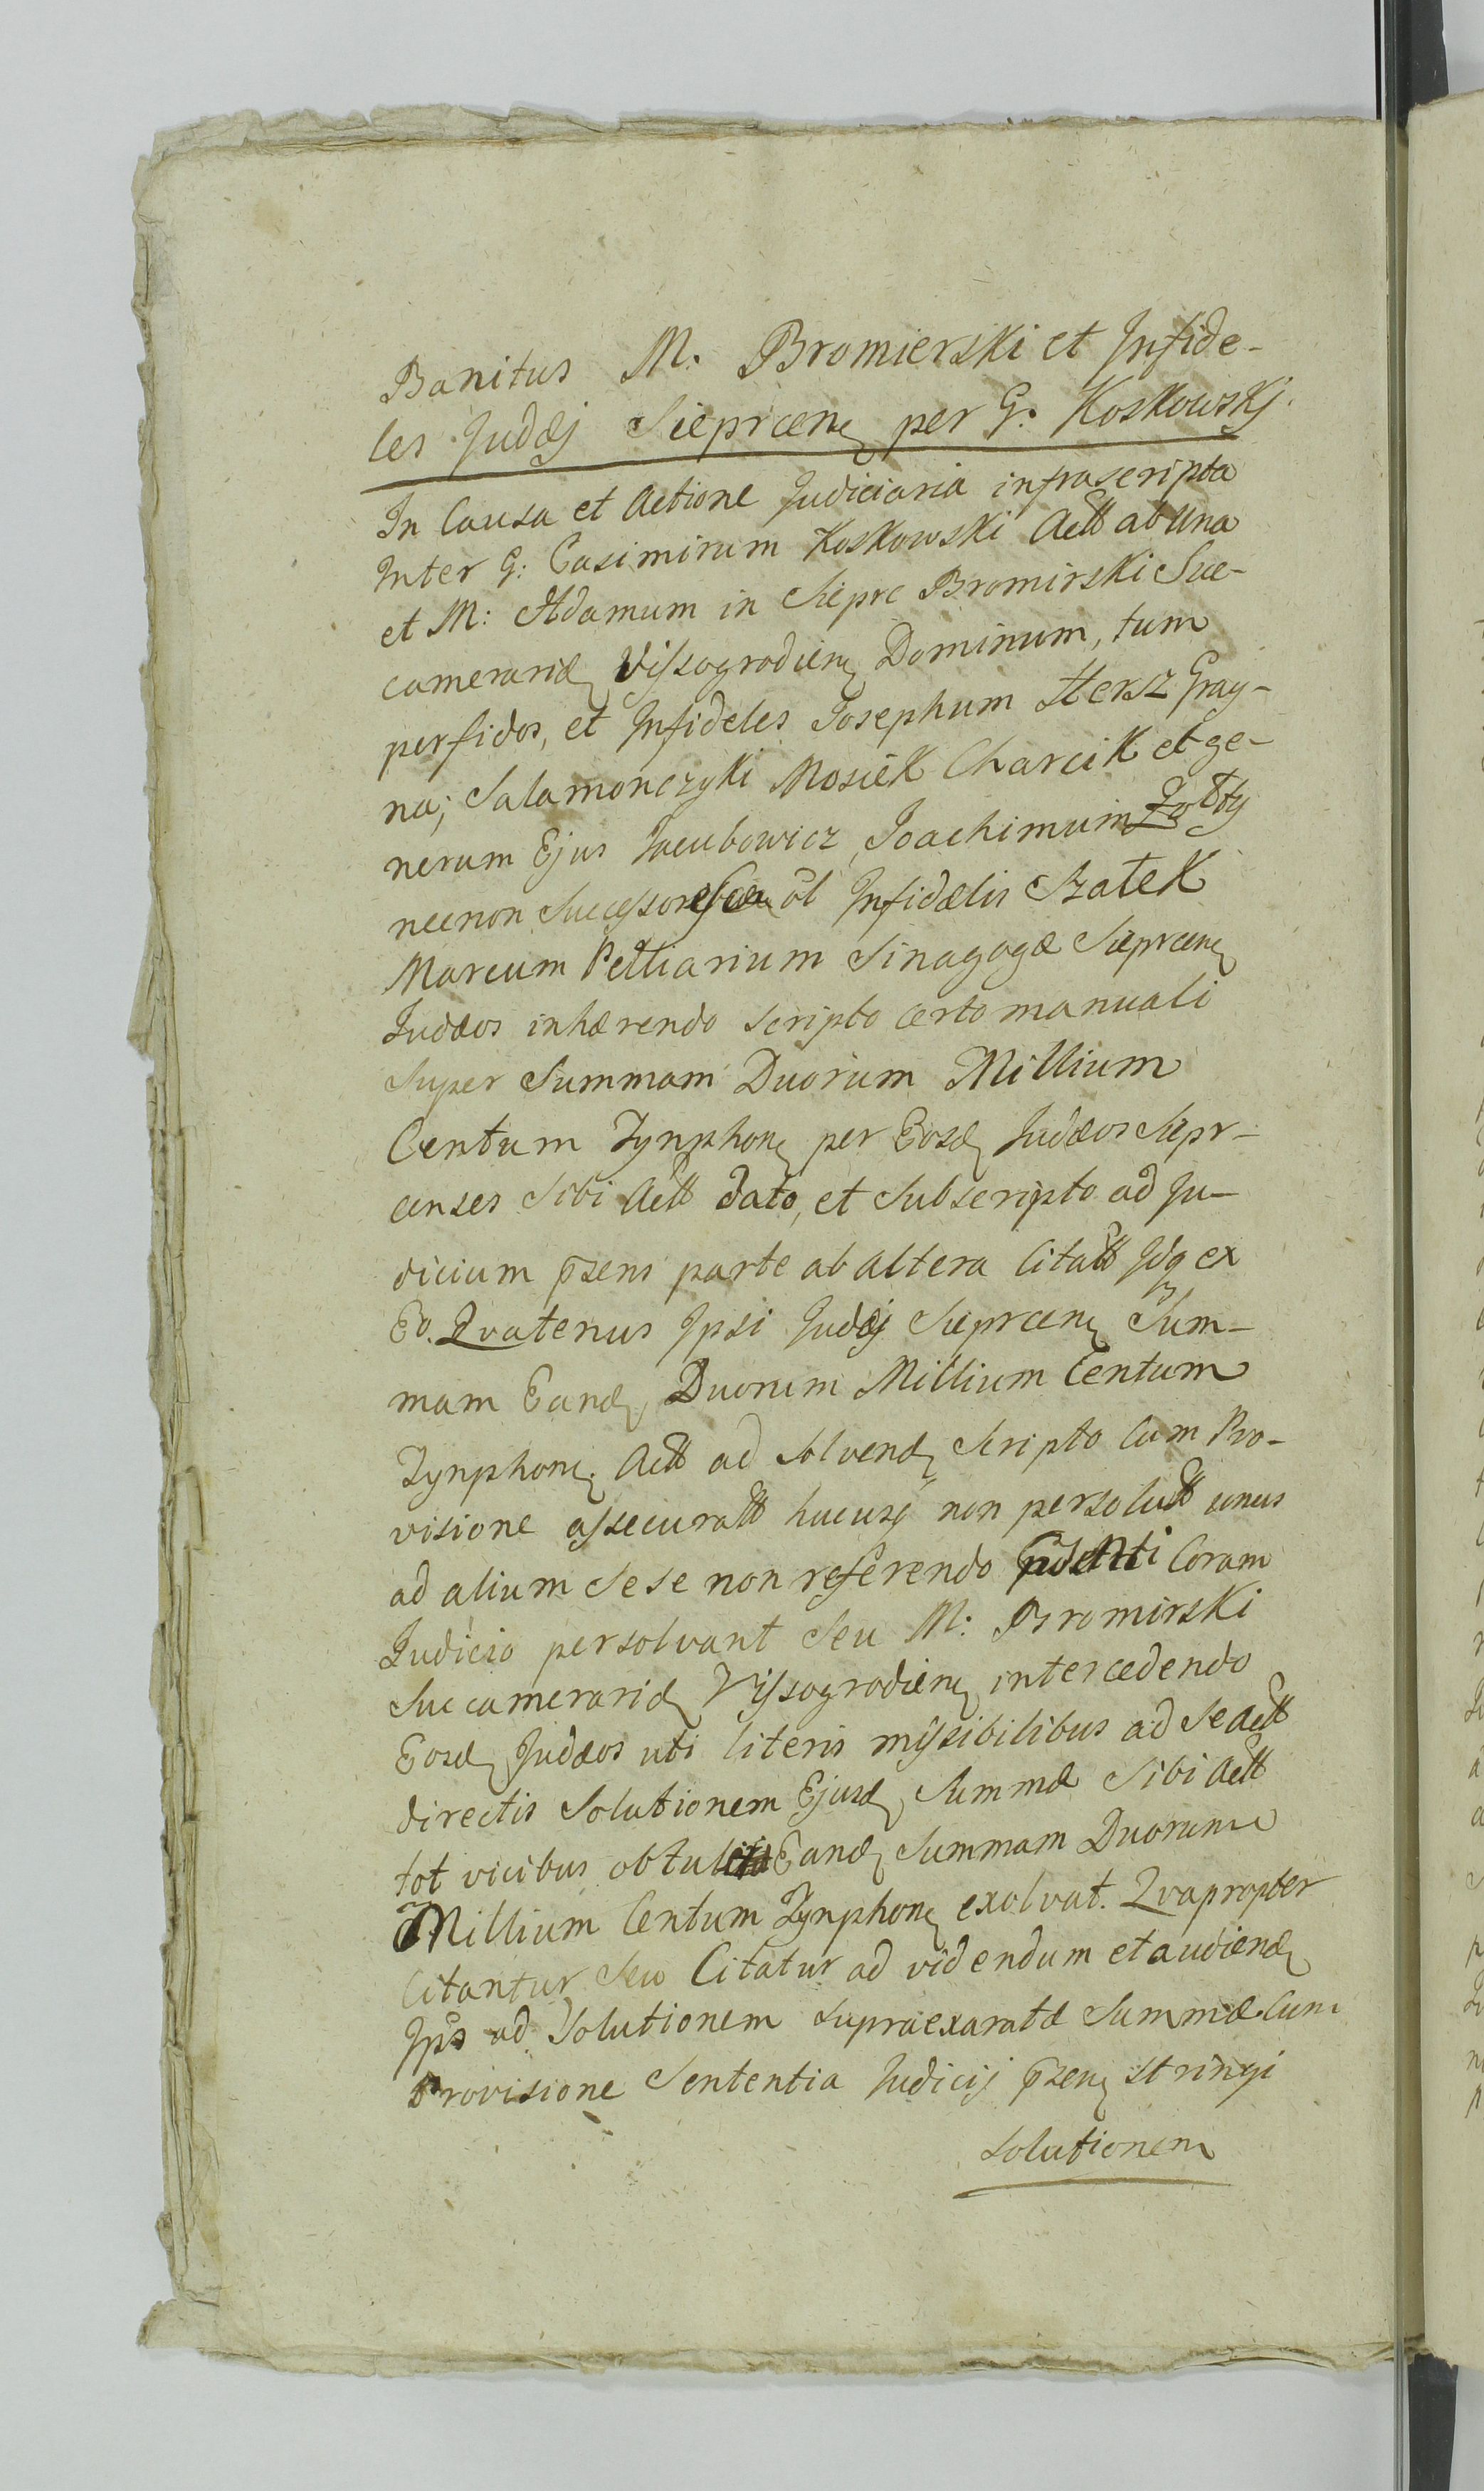 Banitus M. Bromierski et Infide-
les Judæj Sieprcen per G. Koskowskj.
In Causa et Actione Judiciaria infrascripta
Inter G: Casimirum Koskowski Actt ab una
et M: Adamum in Sieprc Bromirski Suc-
camerarid Vissogrodien Dominum, tum
perfidos, et Infideles Josephum Hersz Gray-
na; Salamonczyki Mosiek Charcik et ge-
nerum Ejus Jacubowicz, Joachimum Zołty
necnon Successores ol Infidælis Szatek
Marcum Pelliarium Sinagogæ Sieprcen
Judæos inhærendo scripto certo manuali
Super Summam Duorum Millium
Centum Tynphon per Eosd Judæos Siepr-
censes Sibi Actt dato, et Subscripto ad Ju-
dicium pzens parte ab altera Citatt Idq ex
Eo. Qvatenus Ipsi Judæj Sieprcen Sum-
mam Eand Duorum Millium Centum
Tynphon. Actt ad Solvend Scripto Cum Pro-
visione assecuratt hucusq non persolutt unus
ad alium Sese non referendo Coram
Judicio persolvant Seu M: Bromirski
Succamerarid Vissogrodien intercedendo
Eosd Judæos uti literis missibilibus ad Se Actt
directis Solutionem Ejusd Summæ Sibi Actt
tot vicibus obtulit Eand Summam Duorum
Millium Centum Tynphon exolvat. Qvapropter
Citantur Seu Citatur ad videndum et audiend
Ips ad Solutionem supraexaratæ Summæ Cum
Provisione Sententia Judicij pzen stringi
solutionem